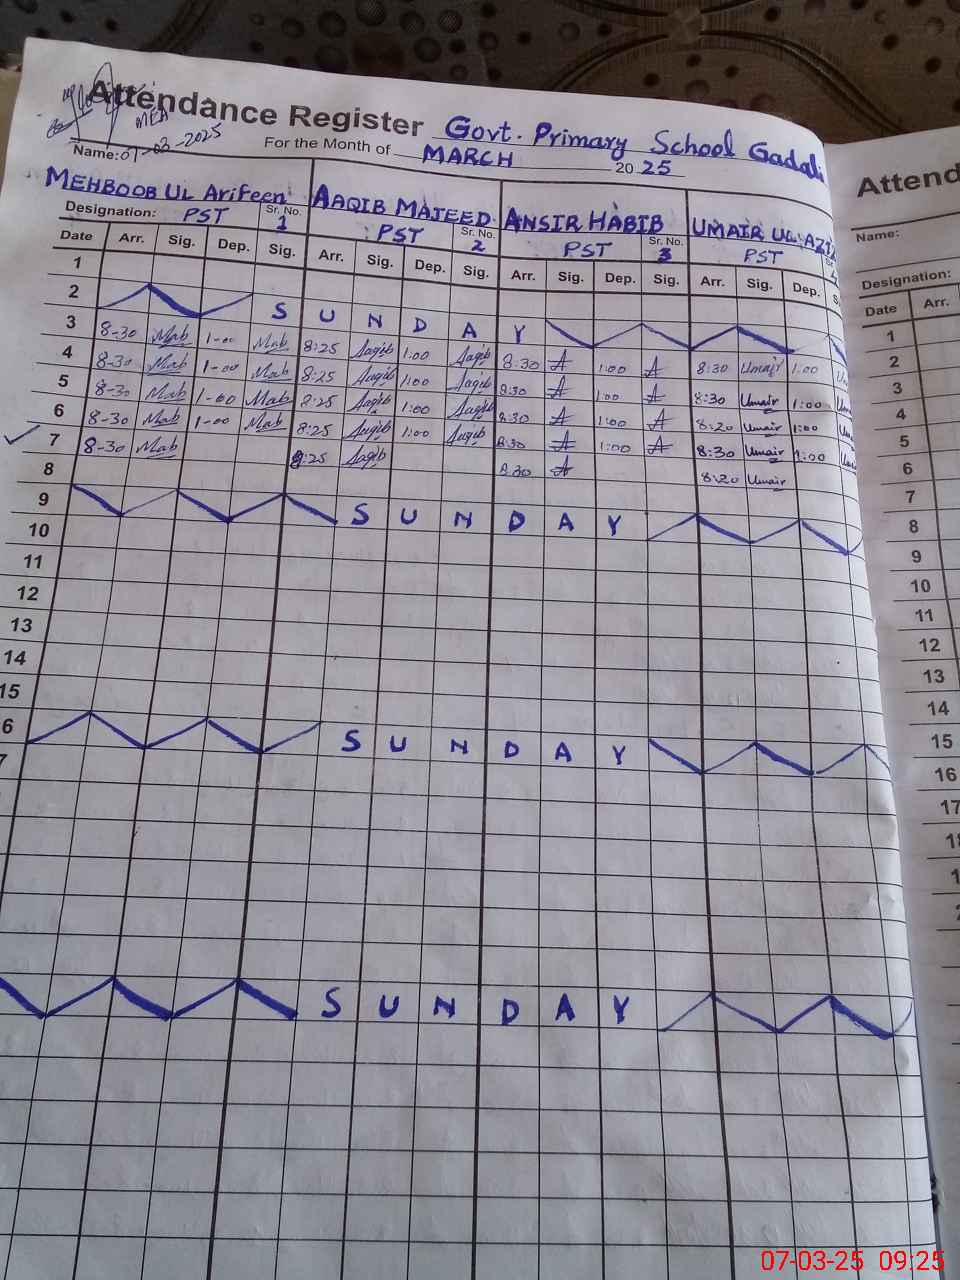 Attendance Register Govt. Primary School Gadali
MEA
07-03-2025
For the Month of MARCH 2025
Name:
MEHBOOB UL Arifeen AAQIB MAJEED ANSIR HABIB UMAIR UL AZIZ
Designation: PST Sr. No. 1 PST Sr. No. 2 PST Sr. No. 3 PST
Date Arr. Sig. Dep. Sig. Arr. Sig. Dep. Sig. Arr. Sig. Dep. Sig. Arr. Sig. Dep. S
1
2 S U N D A Y
3 8-30 Mab 1-00 Mab 8:25 Aaqib 1:00 Aaqib 8:30 A 1:00 A 8:30 Umair 1:00
4 8-30 Mab 1-00 Mab 8:25 Aaqib 1:00 Aaqib 8:30 A 1:00 A 8:30 Umair 1:00
5 8-30 Mab 1-00 Mab 8:25 Aaqib 1:00 Aaqib 8:30 A 1:00 A 8:20 Umair 1:00
6 8-30 Mab 1-00 Mab 8:25 Aaqib 1:00 Aaqib 8:30 A 1:00 A 8:30 Umair 1:00
7 8-30 Mab 8:25 Aaqib 8:30 A 8:20 Umair
8
9 S U N D A Y
10
11
12
13
14
15
6 S U N D A Y
7
S U N D A Y
Attend
Name:
Designation:
Date Arr.
1
2
3
4
5
6
7
8
9
10
11
12
13
14
15
16
17
07-03-25 09:25